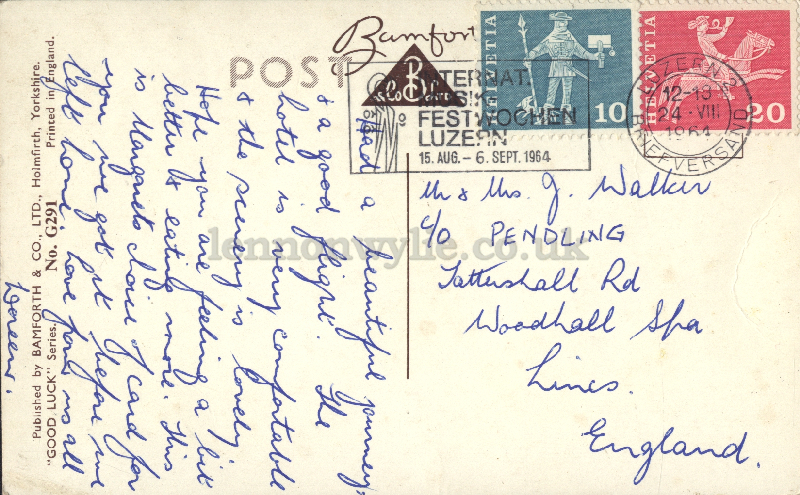 Bamforth
POST
HELVETIA
10
HELVETIA
20
INTERNAT.
MUSIK
FESTWOCHEN
LUZERN
15. AUG. – 6. SEPT. 1964
LUZERN 2
12-13
24 · VIII
1964
BRIEFVERSAND
Had a beautiful journey
& a good flight. The
hotel is very comfortable
& the scenery is lovely
Hope you are feeling a bit
better & eating more. This
is Margarets choice of card for
you we got it before we
left home. Love from us all
Doreen.
Mr & Mrs. J. Walker
c/o PENDLING
Tattershall Rd
Woodhall Spa
Lincs.
England.
Published by BAMFORTH & CO., LTD., Holmfirth, Yorkshire.
"GOOD LUCK" Series.
No. G291
Printed in England.
lennonwylie.co.uk